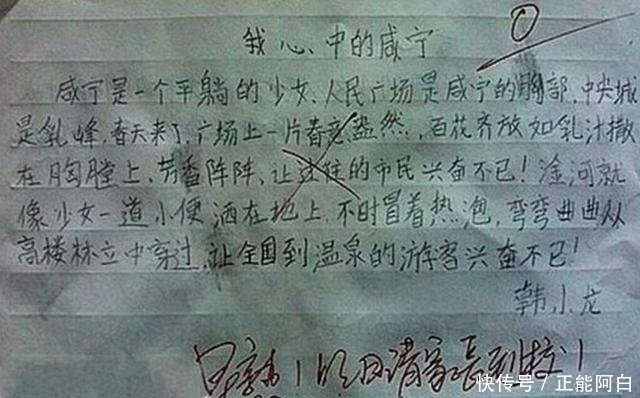 我心中的咸宁
0
咸宁是一个平躺的少女、人民广场是咸宁的胸部、中央城
是乳峰,春天来了,广场上一片春意盎然,百花齐放如乳汁撒
在胸膛上、芳香阵阵、让过往的市民兴奋不已!淦河就
像少女一道小便洒在地上,不时冒着热泡,弯弯曲曲从
高楼林立中穿过,让全国到温泉的游客兴奋不已!
韩小龙
明日请家长到校!
快传号/正能阿白